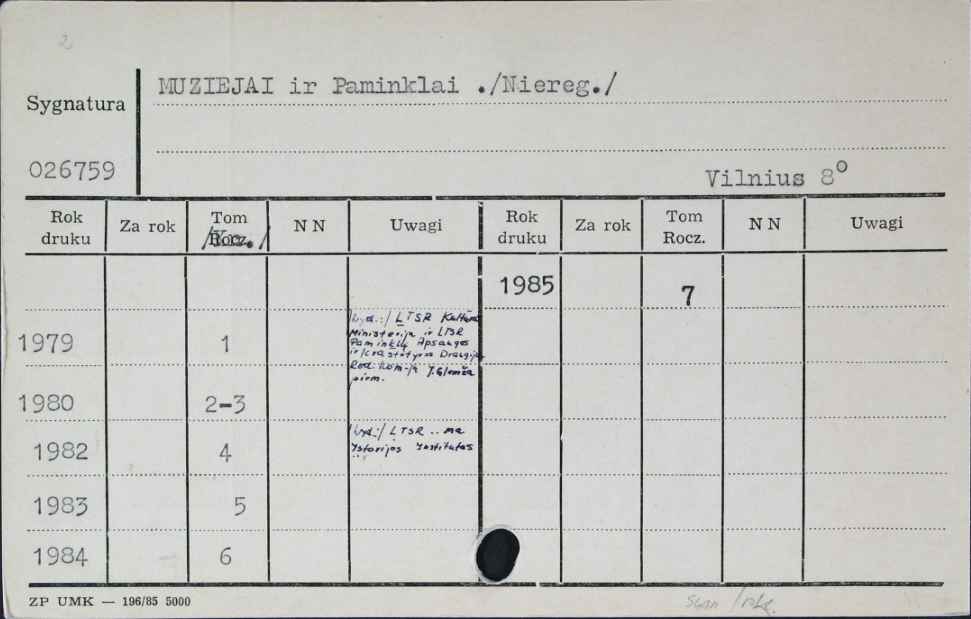 2
MUZIEJAI ir Paminklai ./Niereg./
Sygnatura
026759
Vilnius 8°
Rok druku Za rok Tom Rocz. N N Uwagi Rok druku Za rok Tom Rocz. N N Uwagi
1985 7
1979 1 /Wyd.:/ LTSR Kultūros
Ministerija ir LTSR
Paminklų Apsaugos
ir Kraštotyros Draugija
Red. kom-ja J.Glemža
pirm.
1980 2-3
1982 4 /Wyd.:/ LTSR .. ma
Istorijos Institutas
1983 5
1984 6
ZP UMK — 196/85 5000